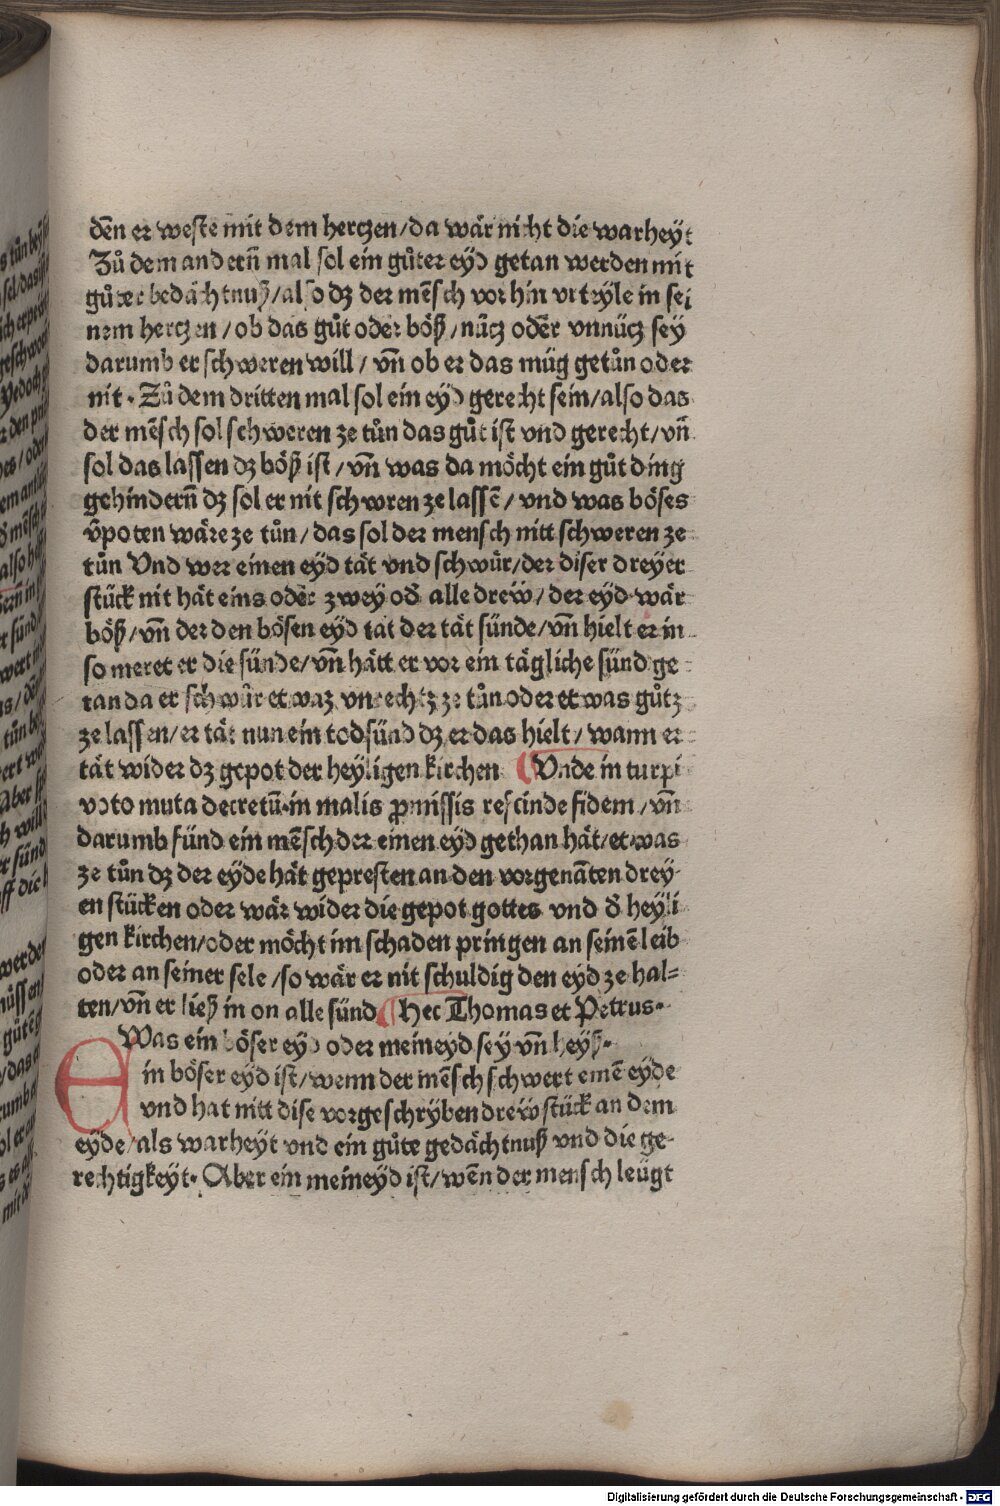 dēn er weste mit dem hertzen/da wär nicht die warheyt
Zů dem andernn mal sol ein gůter eyd getan werden mit
gůter bedächtnuß/also dz der mēsch vor hin vrteyle in sei
nem hertzen/ob das gůt oder böß/nücz odēr vnnücz sey
darumb er schweren will/vn̄ ob er das müg getůn oder
nit. Zů dem dritten mal sol ein eyd gerecht sein/also das
der mēsch sol schweren ze tůn das gůt ist vnd gerecht/vn̄
sol das lassen dz böß ist/vn̄ was da möcht ein gůt ding
gehindern̄ dz sol er nit schwren ze lassē/vnd was böses
v̄poten wäre ze tůn/das sol der mensch nitt schweren ze
tůn Vnd wer einen eyd tät vnd schwůr/der diser dreyer
stück nit hät eins odēr zwey od̄ alle dreẅ/der eyd wär
böß/vn̄ der den bösen eyd tät der tät sünde/vn̄ hielt er in
so meret er die sünde/vn̄ hätt er vor ein tägliche sünd ge
tan da er schwůr etwaz vnrechtz ze tůn oder etwas gůtz
ze lassen/er tät nun ein todsünd dz er das hielt/wann er
tät wider dz gepot der heyligen kirchen Vnde in turpi
voto muta decretū.in malis ꝓmissis rescinde fidem/vn̄
darumb fünd ein mēsch der einen eyd gethan hät/etwas
ze tůn dz der eyde hät gepresten an den vorgenāten drey
en stücken oder wär wider die gepot gottes vnd d̄ heyli
gen kirchen/oder möcht im schaden pringen an seinē leib
oder an seiner sele/so wär er nit schuldig den eyd ze hal=
ten/vn̄ er ließ in on alle sünd Hec Thomas et Petrus.
Was ein böser eyd oder meineyd sey vn̄ heyß.
E in böser eyd ist/wenn der mēsch schwert einē eyde
vnd hat nitt dise vorgeschryben dreẅ stück an dem
eyde/als warheyt vnd ein gůte gedächtnuß vnd die ge-
rechtigkeyt. Aber ein meineyd ist/wēn der mensch leügt
Digitalisierung gefördert durch die Deutsche Forschungsgemeinschaft - DFG